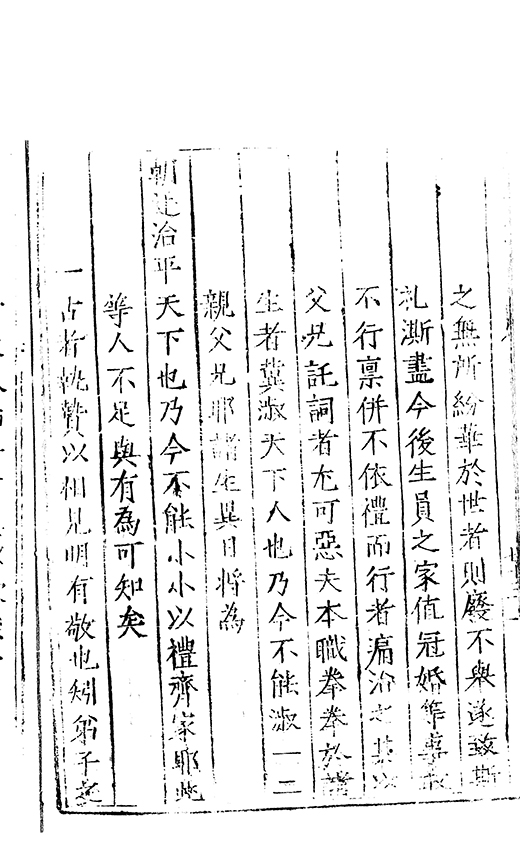 之無所紛華於世者則廢不舉遂致斯
礼漸盡今後生員之家值冠婚等事
不行稟併不依禮而行者痛治之其以
父兄託詞者尤可惡夫本職拳拳於諸
生者冀淑天下人也乃今不能淑一二
親父兄耶諸生異日將為
朝廷治平天下也乃今不能小小以禮齊家耶此
等人不足與有為可知矣
一古者執贄以相見明有敬也矧弟子